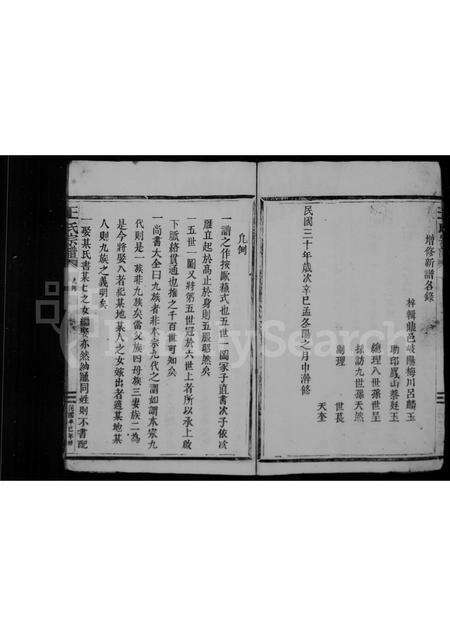 增修新譜名錄
梓輯鼎邑岐陽梅川呂麟玉
助印鳳山蔡廷玉
總理八世孫世呈
採訪九世孫天然
副理 世長
天奎
民國三十年歲次辛巳孟冬陽之月中澣修
凡例
一譜之作按歐蘇式也五世一圖冢子直書次子依次
雁立起於高止於身則五服昭然矣
一五世一圖又將第五世冠於六世上者所以承上啟
下脈絡貫通也推之千百世可知矣
一尚書大全曰九族者非本宗九代之如謂本宗九
代則是一族非九族矣當父族四母族三妻族二為
是今將娶入者紀某地某人之女嫁出者適某地某
人則九族之義明矣
一娶某氏書某之女繼娶亦然汕雖同姓則不書配
王氏宗譜
民國辛巳年修
FamilySearch